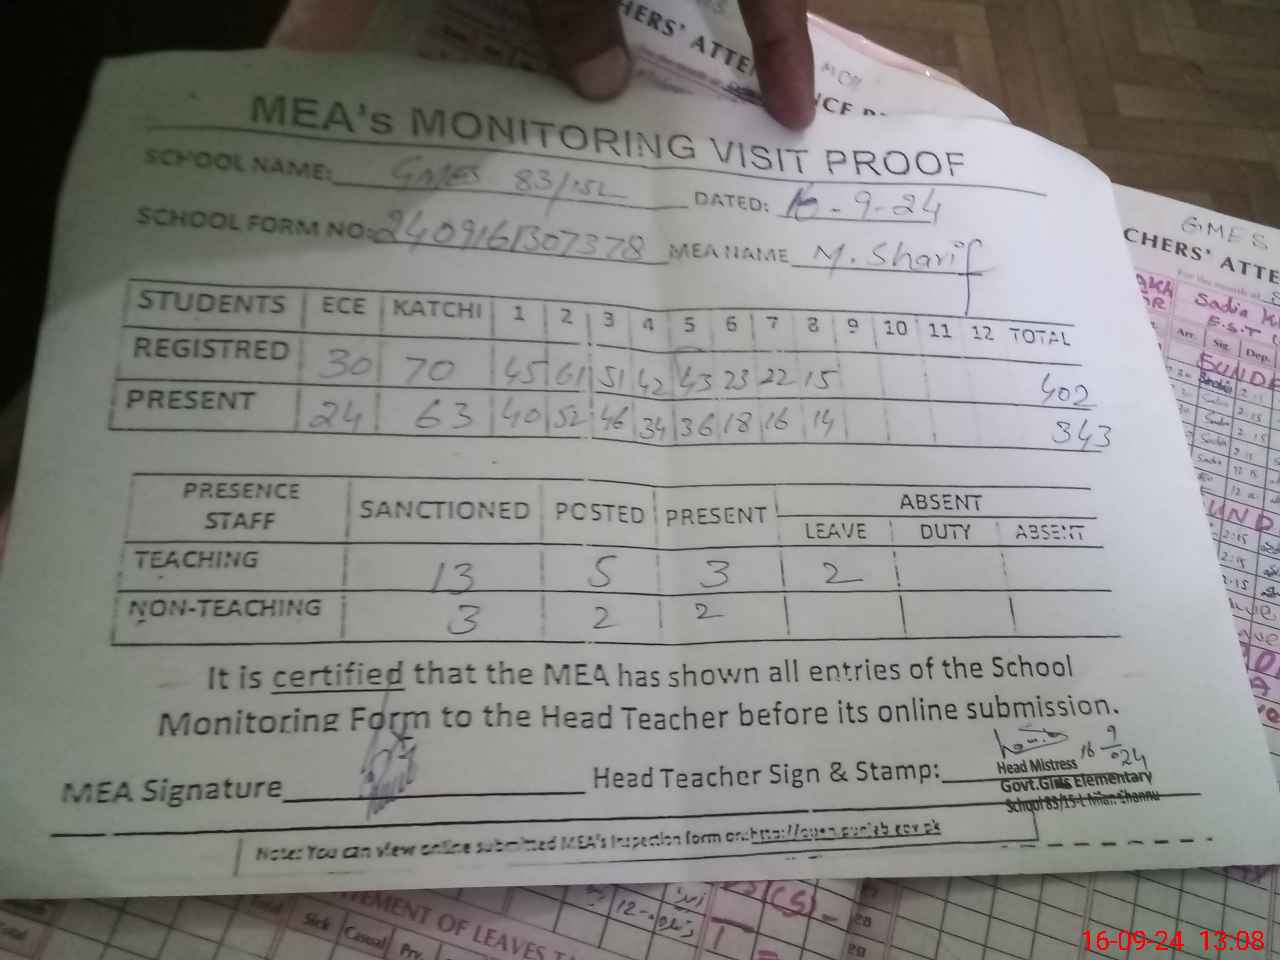 HERS' ATTE
NCE
MEA's MONITORING VISIT PROOF
SCHOOL NAME: GMES 83/15L DATED: 16-9-24
SCHOOL FORM NO: 2409161307378 MEA NAME M. Sharif
STUDENTS ECE KATCHI 1 2 3 4 5 6 7 8 9 10 11 12 TOTAL
REGISTRED 30 70 45 61 51 42 43 23 22 15 402
PRESENT 24 63 40 52 46 34 36 18 16 14 343
PRESENCE STAFF SANCTIONED POSTED PRESENT ABSENT
LEAVE DUTY ABSENT
TEACHING 13 5 3 2
NON-TEACHING 3 2 2
It is certified that the MEA has shown all entries of the School
Monitoring Form to the Head Teacher before its online submission.
MEA Signature Head Teacher Sign & Stamp:
16 9/024
Head Mistress
Govt.Girls Elementary
School 83/15-L Mian Channu
Note: You can view online submitted MEA's Inspection form on: http://open.punjab.gov.pk
GMES
CHERS' ATTE
For the month of
Sadia
E.S.T
Arr. Sig. Dep.
SUND
2:15
2:15
UND
2:15
2:15
2:15
TEMENT OF LEAVES
Sick Casual
Total
12
16-09-24 13:08